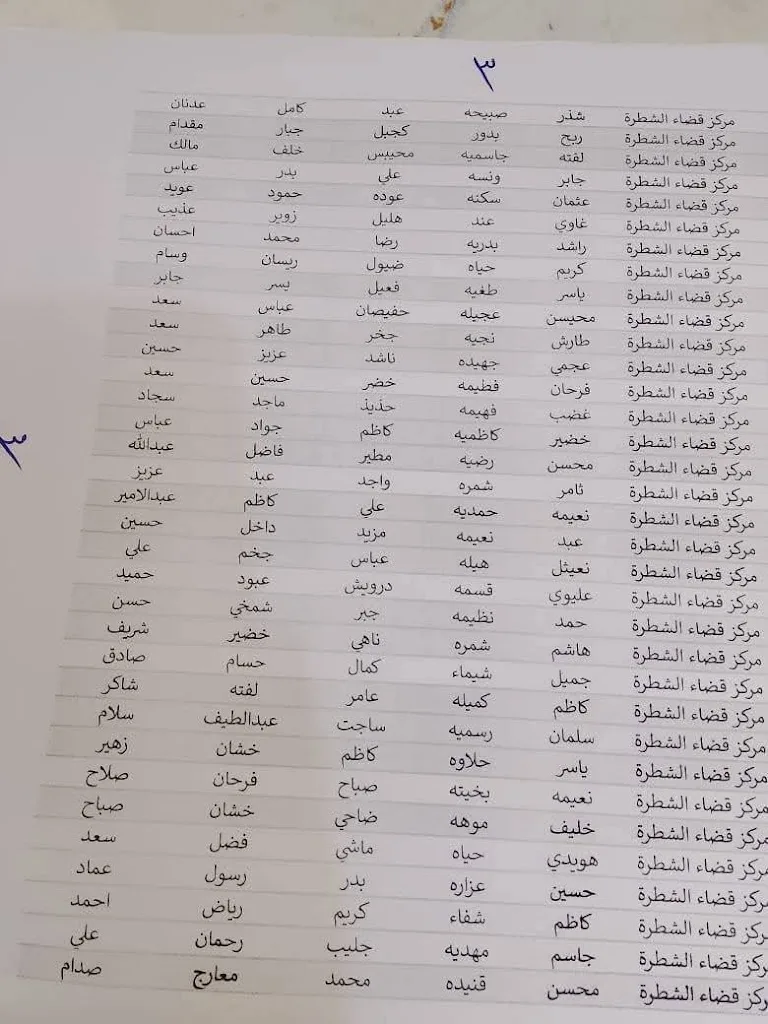 ٣
مركز قضاء الشطرة شذر صبيحه عبد كامل عدنان
مركز قضاء الشطرة ربح بدور كجيل جبار مقدام
مركز قضاء الشطرة لفته جاسميه محيبس خلف مالك
مركز قضاء الشطرة جابر ونسه علي بدر عباس
مركز قضاء الشطرة عثمان سكنه عوده حمود عويد
مركز قضاء الشطرة غاوي عند هليل زوير عذيب
مركز قضاء الشطرة راشد بدريه رضا محمد احسان
مركز قضاء الشطرة كريم حياه ضيول ريسان وسام
مركز قضاء الشطرة ياسر طغيه فعيل يسر جابر
مركز قضاء الشطرة محيسن عجيله حفيصان عباس سعد
مركز قضاء الشطرة طارش نجيه جخر طاهر سعد
مركز قضاء الشطرة عجمي جهيده ناشد عزيز حسين
مركز قضاء الشطرة فرحان فطيمه خضر حسين سعد
مركز قضاء الشطرة غضب فهيمه حذيذ ماجد سجاد
مركز قضاء الشطرة خضير كاظميه كاظم جواد عباس
مركز قضاء الشطرة محسن رضيه مطير فاضل عبدالله
مركز قضاء الشطرة ثامر شمره واجد عبد عزيز
مركز قضاء الشطرة نعيمه حمديه علي كاظم عبدالامير
مركز قضاء الشطرة عبد نعيمه مزيد داخل حسين
مركز قضاء الشطرة نعيثل هيله عباس جخم علي
مركز قضاء الشطرة عليوي قسمه درويش عبود حميد
مركز قضاء الشطرة حمد نظيمه جبر شمخي حسن
مركز قضاء الشطرة هاشم شمره ناهي خضير شريف
مركز قضاء الشطرة جميل شيماء كمال حسام صادق
مركز قضاء الشطرة كاظم كميله عامر لفته شاكر
مركز قضاء الشطرة سلمان رسميه ساجت عبدالطيف سلام
مركز قضاء الشطرة ياسر حلاوه كاظم خشان زهير
مركز قضاء الشطرة نعيمه بخيته صباح فرحان صلاح
مركز قضاء الشطرة خليف موهه ضاحي خشان صباح
مركز قضاء الشطرة هويدي حياه ماشي فضل سعد
مركز قضاء الشطرة حسين عزاره بدر رسول عماد
مركز قضاء الشطرة كاظم شفاء كريم رياض احمد
مركز قضاء الشطرة جاسم مهديه جليب رحمان علي
مركز قضاء الشطرة محسن قنيده محمد معارج صدام
٣